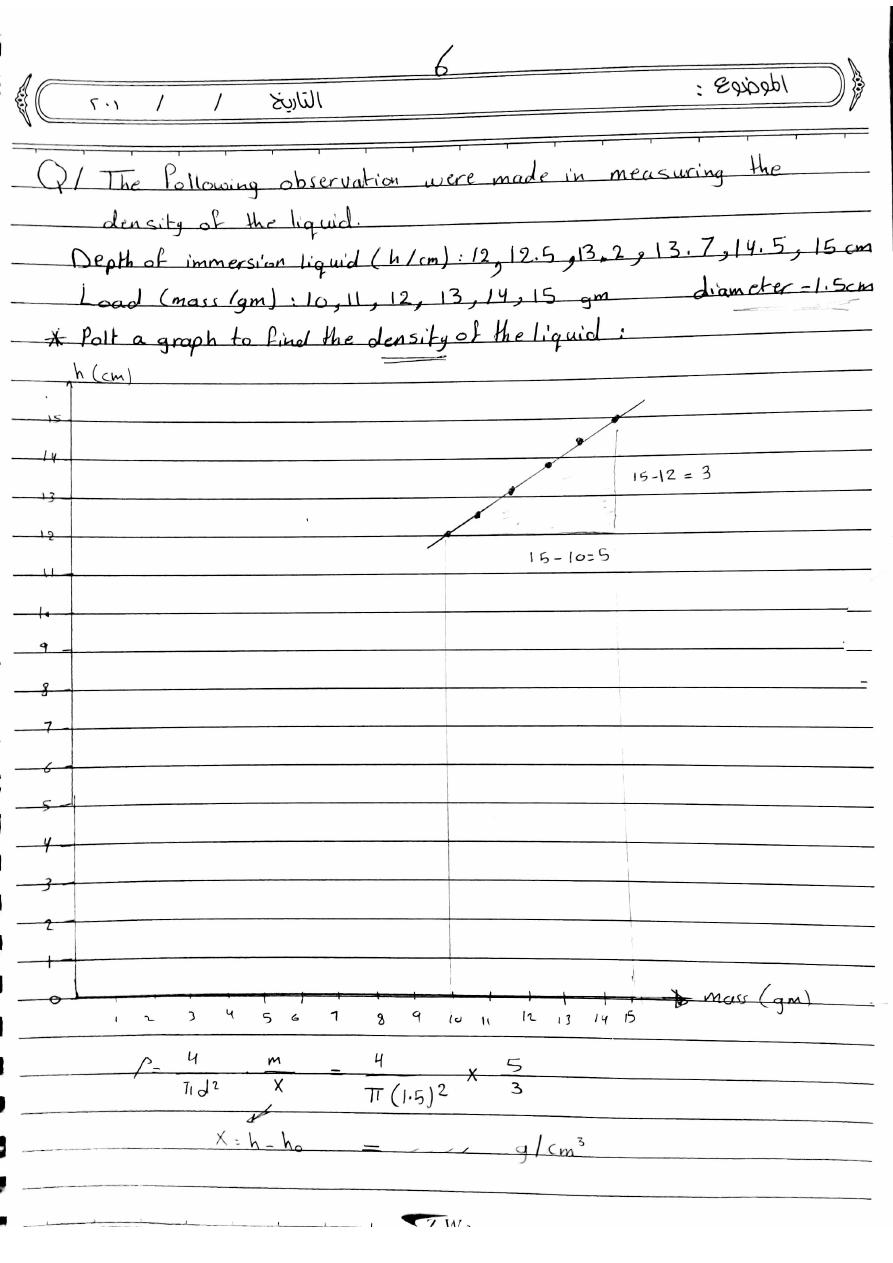 6
الموضوع :
التاريخ / / ٢٠١
Q1 The following observation were made in measuring the
density of the liquid.
Depth of immersion liquid (h/cm) : 12, 12.5, 13.2, 13.7, 14.5, 15 cm
Load (mass/gm) : 10, 11, 12, 13, 14, 15 gm diameter = 1.5cm
* Polt a graph to find the density of the liquid :
h (cm)
15
14
15-12 = 3
13
12
15-10=5
11
10
9
8
7
6
5
4
3
2
1
0 mass (gm)
1 2 3 4 5 6 7 8 9 10 11 12 13 14 15
ρ = 4/πd² m/x = 4/π(1.5)² × 5/3
x = h - h₀ = ...... g/cm³